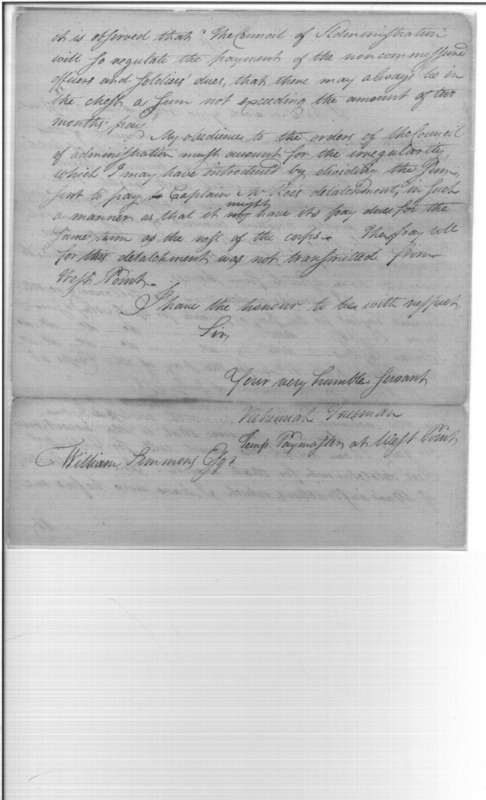 it is observed that "The Council of Administration
will so regulate the payment of the noncommissioned
officers and soldiers' dues, that there may always be in
the chest a sum not exceeding the amount of two
months pay."
My obedience to the orders of the Council
of administration must account for the irregularity
which I may have introduced by dividing the sum
sent to pay Captain detachment, in such
a manner as that it might have its pay due for the
same term as the rest of the corps. The pay roll
for this detachment was not transmitted from
West Point.
I have the honour to be with respect
Sir,
Your very humble Servant
Nehemiah Freeman
Temp. Paymaster at West Point
William Simmons Esqr